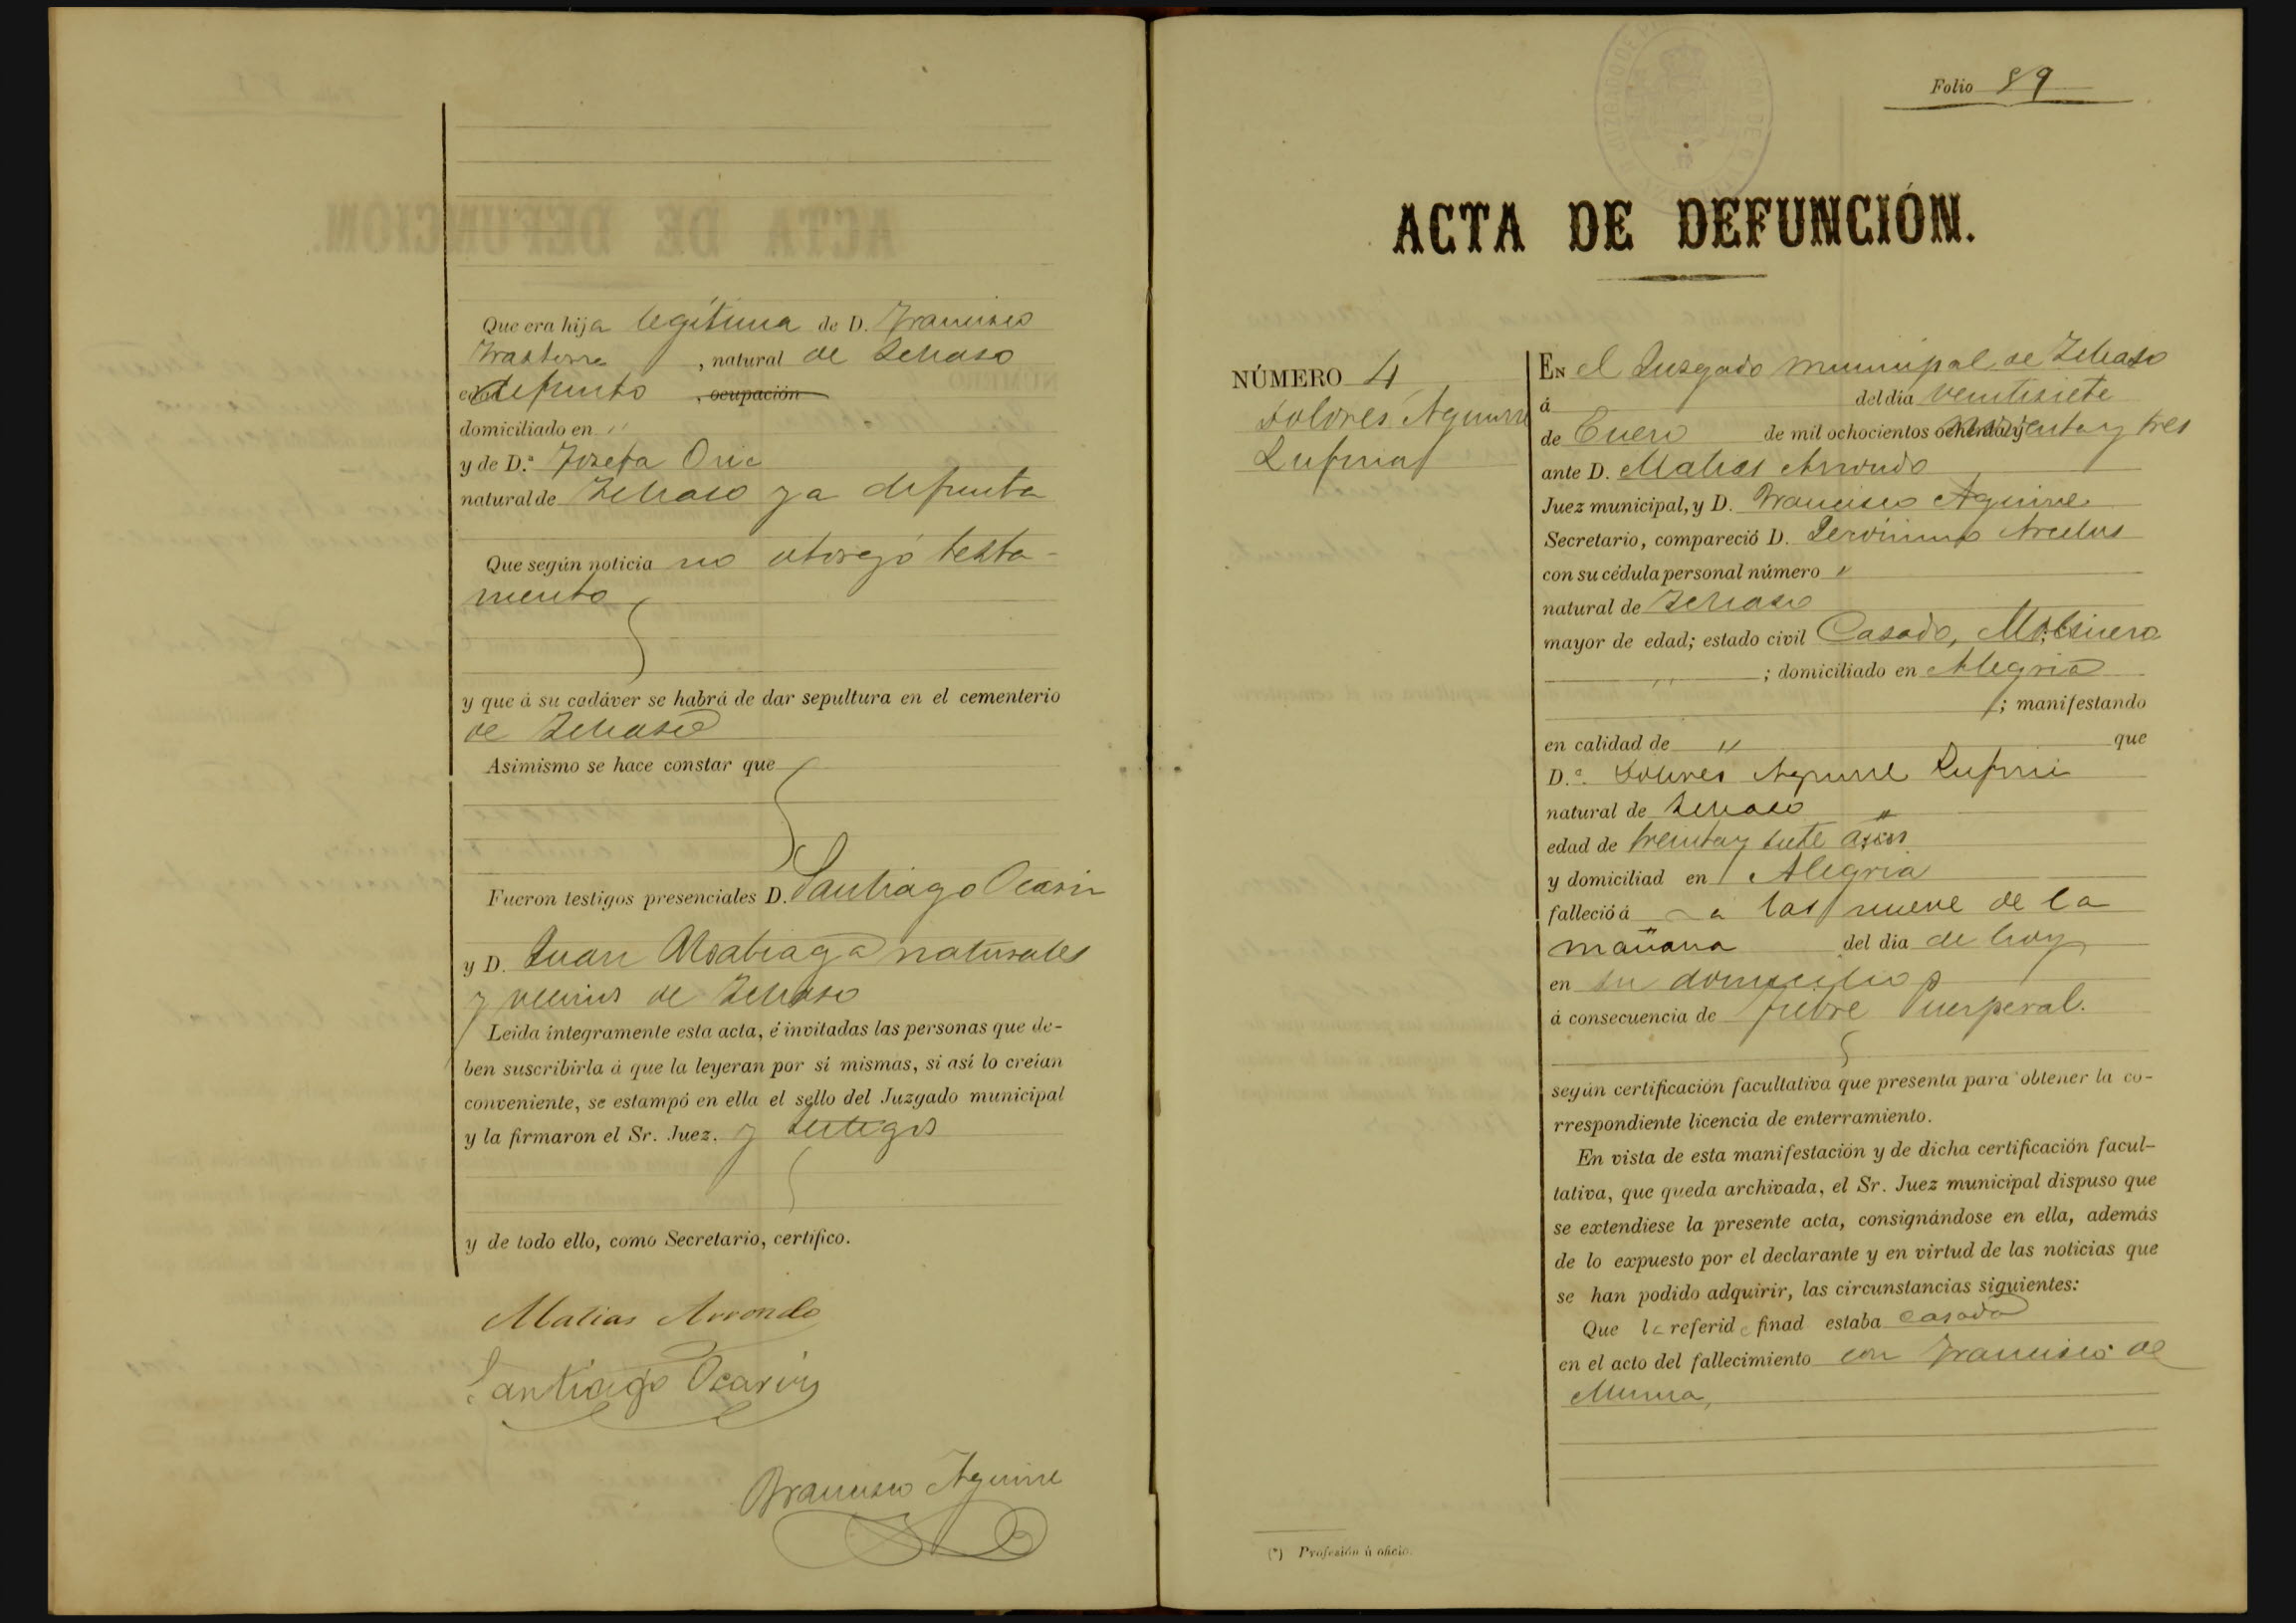 Que era hija legítima de D. Francisco
Irastorza, natural de Icliaso
difunto , ocupación
domiciliado en "
y de D.ª Josefa Oria
natural de Icliaso ya difunta
Que según noticia no otorgó testa-
mento
y que á su cadáver se habrá de dar sepultura en el cementerio
de Icliaso
Asimismo se hace constar que
Fueron testigos presenciales D. Santiago Ocariz
y D. Juan naturales
y vecinos de Icliaso
Leída íntegramente esta acta, é invitadas las personas que de-
ben suscribirla á que la leyeran por sí mismas, si así lo creían
conveniente, se estampó en ella el sello del Juzgado municipal
y la firmaron el Sr. Juez. y testigos
y de todo ello, como Secretario, certifico.
Matias Arrondo
Santiago Ocariz
Francisco Aguirre
Folio 89
ACTA DE DEFUNCIÓN.
NÚMERO 4
Dolores Aguirre
En el Juzgado municipal de Icliaso
á del día veintisiete
de Enero de mil ochocientos ochenta y noventa y tres
ante D. Matias Arrondo
Juez municipal, y D. Francisco Aguirre
Secretario, compareció D. Gerónimo Arcelus
con su cédula personal número "
natural de Icliaso
mayor de edad; estado civil Casado, Molinero
" ; domiciliado en Alegria
; manifestando
en calidad de " que
D.ª Dolores Aguirre
natural de Icliaso
edad de treinta y siete años
y domiciliad en Alegria
falleció á a las nueve de la
mañana del día de hoy
en su domicilio
á consecuencia de fiebre Puerperal.
según certificación facultativa que presenta para obtener la co-
rrespondiente licencia de enterramiento.
En vista de esta manifestación y de dicha certificación facul-
tativa, que queda archivada, el Sr. Juez municipal dispuso que
se extendiese la presente acta, consignándose en ella, además
de lo expuesto por el declarante y en virtud de las noticias que
se han podido adquirir, las circunstancias siguientes:
Que la referida finad estaba casada
en el acto del fallecimiento con Francisco de
Munua,
(*) Profesión ú oficio.